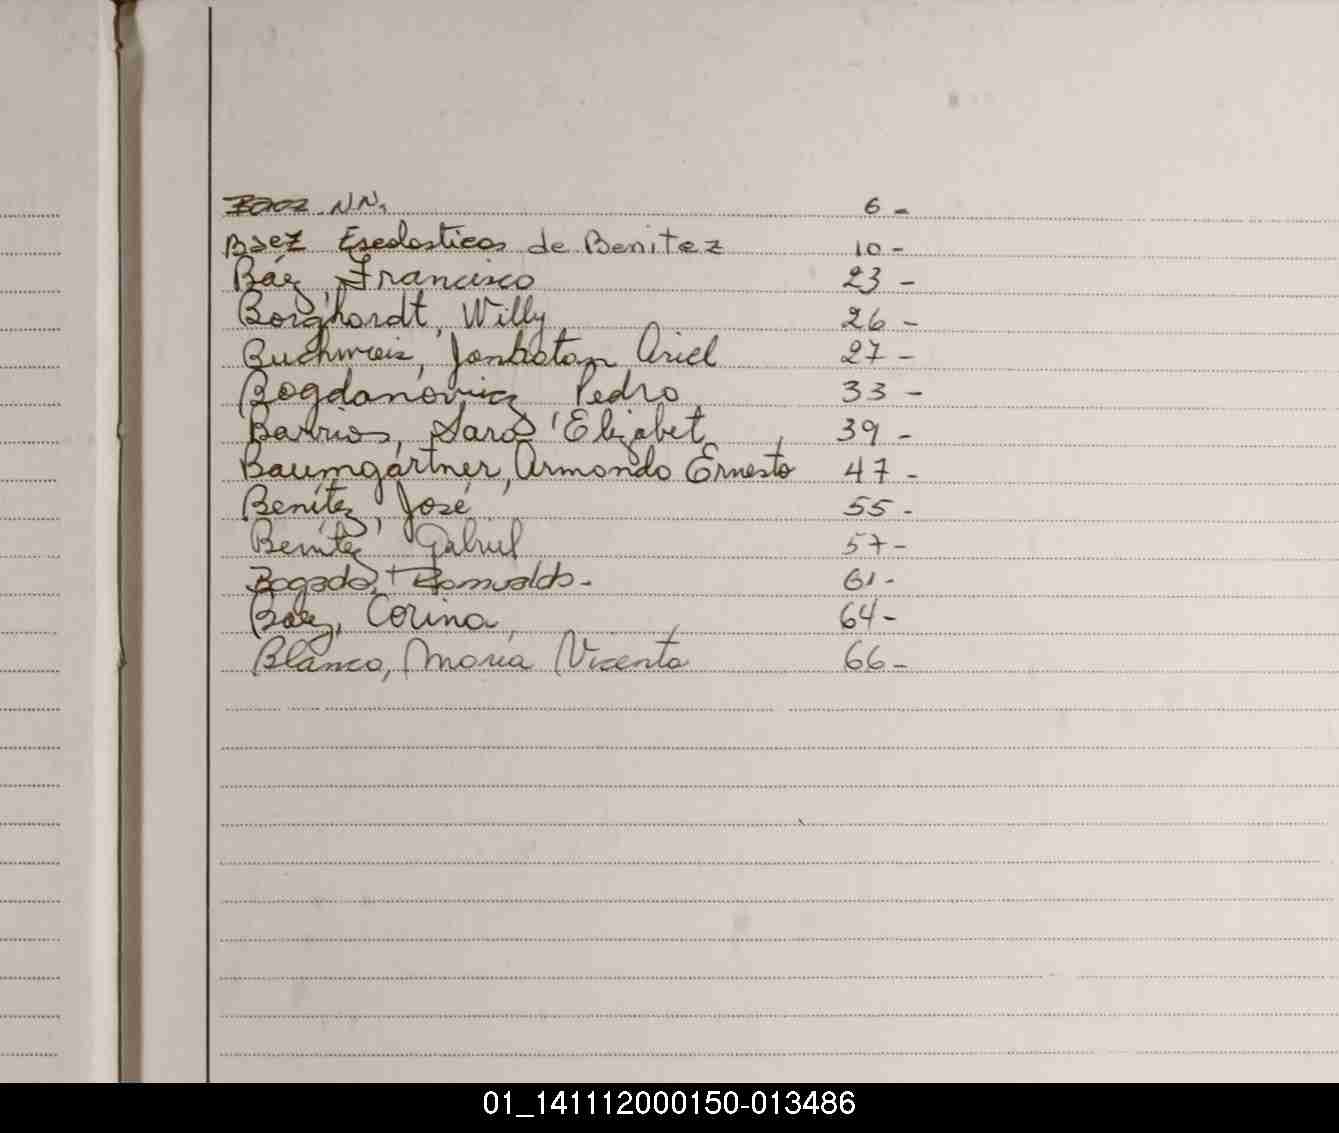 Baez NN. 6 -
Báez Escolasticas de Benitez 10 -
Báez, Francisco 23 -
Borghardt, Willy 26 -
Buchweis, Jonhatan Ariel 27 -
Bogdanovicz Pedro 33 -
Barrios, Sara Elizabet 39 -
Baumgartner, Armando Ernesto 47 -
Benítez, José 55 -
Benítez Gabriel 57 -
Bogado, Romualdo - 61 -
Baez, Corina 64 -
Blanco, María Vicenta 66 -
01_141112000150-013486